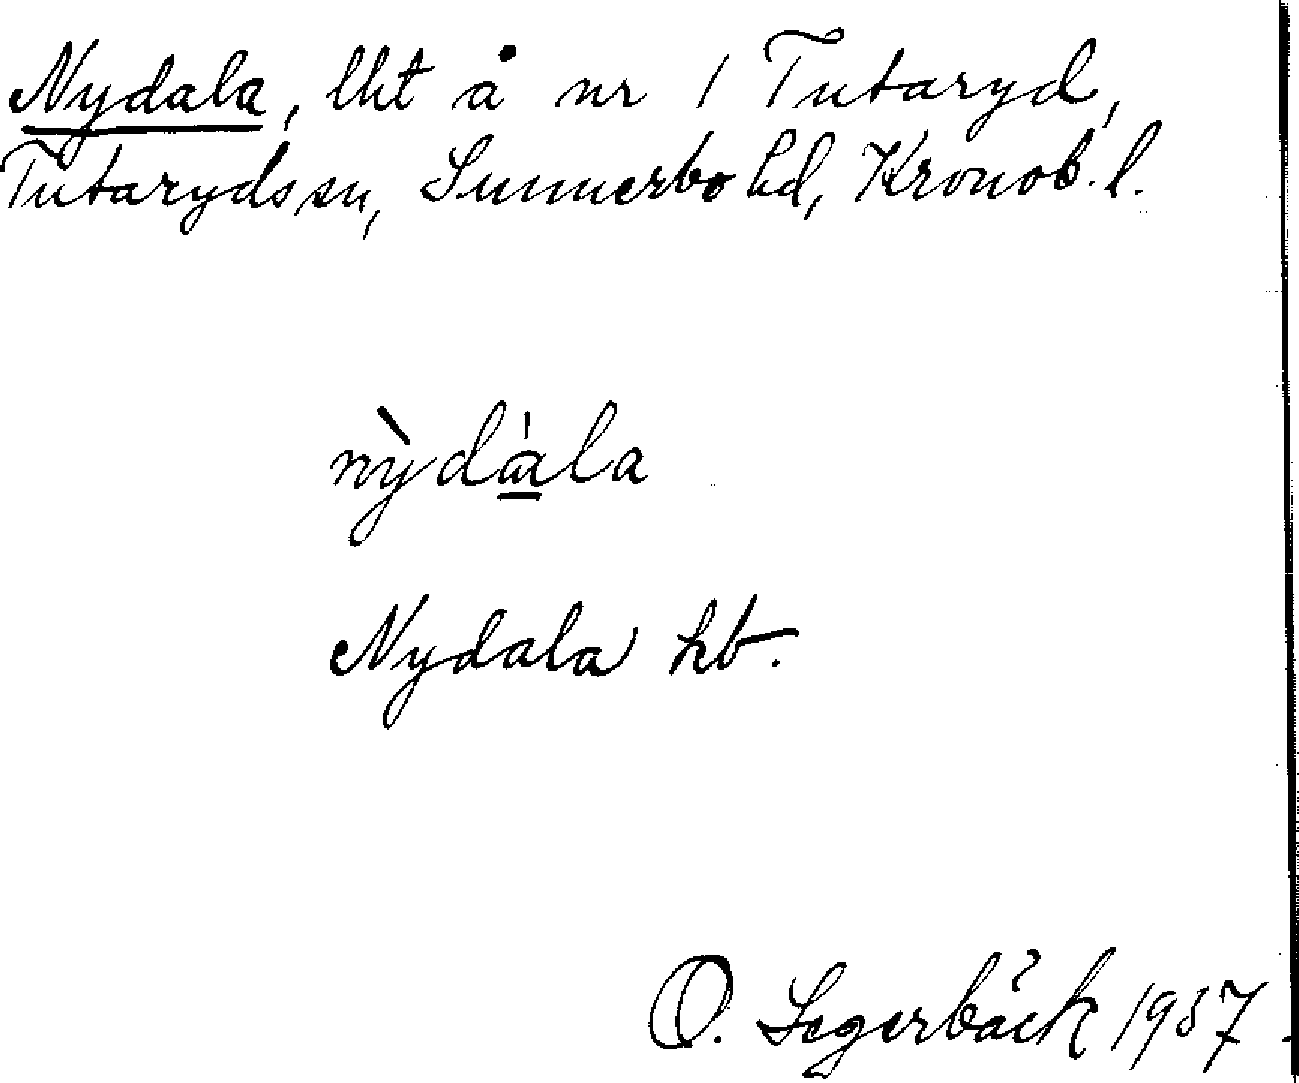 Nydala, lht å nr 1 Tutaryd,
Tutaryds sn, Sunnerbo hd, Kronob. l.
nỳdàla
Nydala hb.
O. Segerbäck 1937.